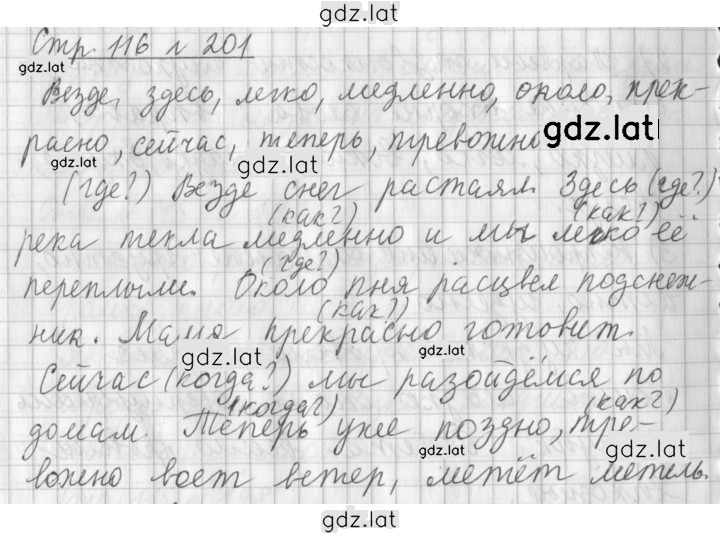 gdz.lat
Стр. 116 № 201
gdz.lat
Везде, здесь, легко, медленно, около, прек-
расно, сейчас, теперь, тревожно
gdz.lat
gdz.lat
gdz.lat
(где?) Везде снег растаял. Здесь (где?)
(как?) (как?)
река текла медленно и мы легко её
(где?)
переплыли. Около пня расцвел подснеж-
(как?)
ник. Мама прекрасно готовит.
gdz.lat
gdz.lat
Сейчас (когда?) мы разойдёмся по
(когда?) (как?)
домам. Теперь уже поздно, тре-
gdz.lat
gdz.lat
вожно воет ветер, метёт метель.
gdz.lat